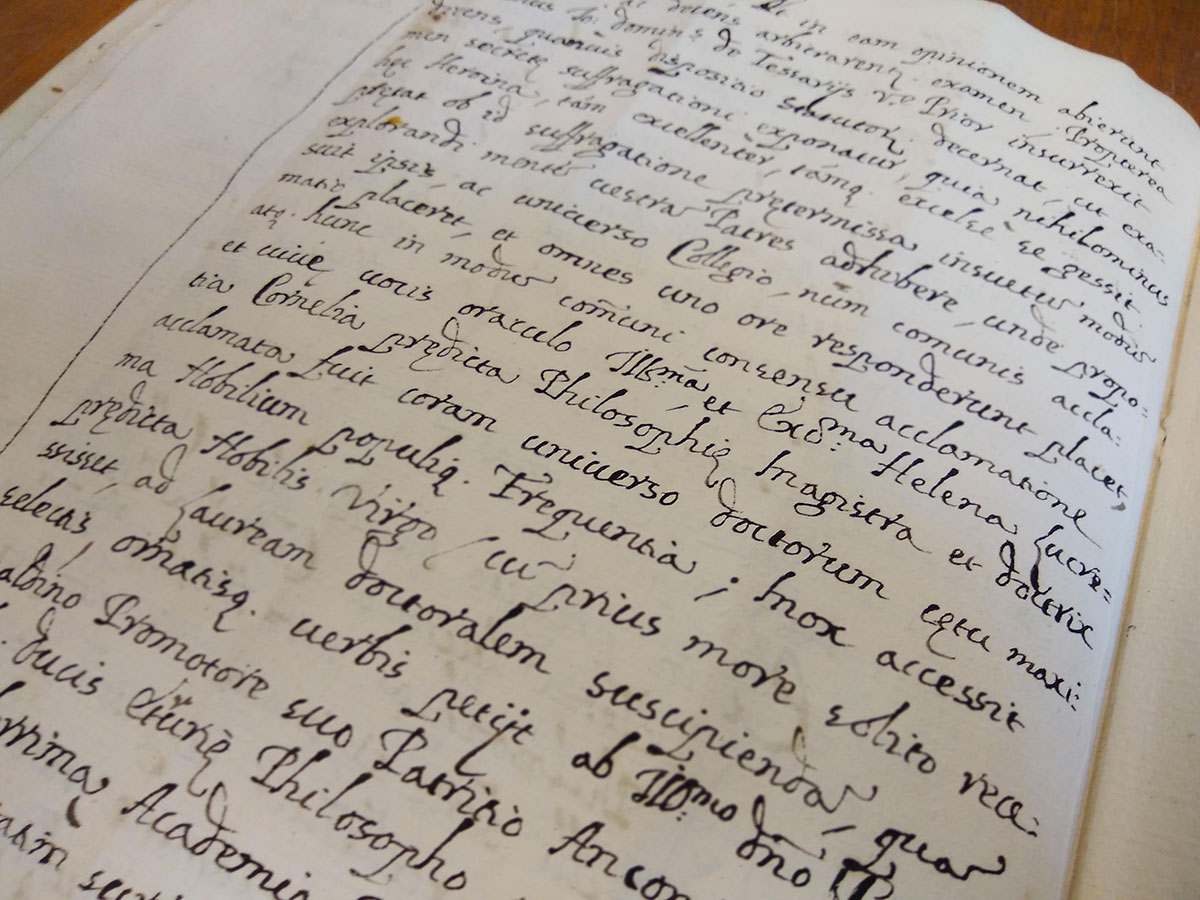 in eam opinionem abierunt
decens arbitrarentr examen. Propterea
domins de Tessarijs v.e Prior insurrexit
decens, quamuis dispositio statutor decernat, ut exa-
men secretę suffragationi exponatur, quia nihilominus
hęc Heroina, tam excellenter, tamq. excelsè se gessit
ob id suffragatione prętermissa insuetus modus
explorandi mentis uestra Patres adhibere, unde propo-
suit ipsis, ac uniuerso Collegio, num comunis accla-
matio placeret, et omnes uno ore responderunt placet,
atq. hunc in modus comuni consensu acclamatione
et uiuę uocis oraculo Illma, et Exc.ma Helena Lucre=
tia Cornelia prędicta Philosophię Magistra et doctrix
acclamata fuit coram uniuerso doctorum cętu maxi:
ma Nobilium populiq. Frequentia; Mox accessit
prędicta Nobilis Virgo cū prius more solito rece:
ssisset, ad Lauream doctoralem suscipienda, qua
selectis, ornatisq. uerbis petijt ab Ill.mo dño
albino Promotore suo Patritio Ancon
ducis Philosopho
rrima Academia